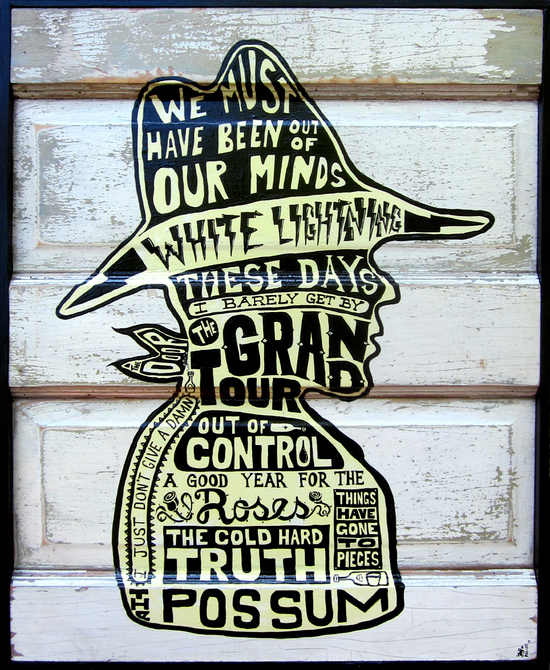 WE MUST
HAVE BEEN OUT OF
OUR MINDS
WHITE LIGHTNING
THESE DAYS
I BARELY GET BY
THE GRAND
TOUR
THE DOOR
I JUST DON'T GIVE A DAMN
OUT OF
CONTROL
A GOOD YEAR FOR THE
Roses
THINGS
HAVE
GONE
TO
PIECES
THE COLD HARD
TRUTH
POSSUM